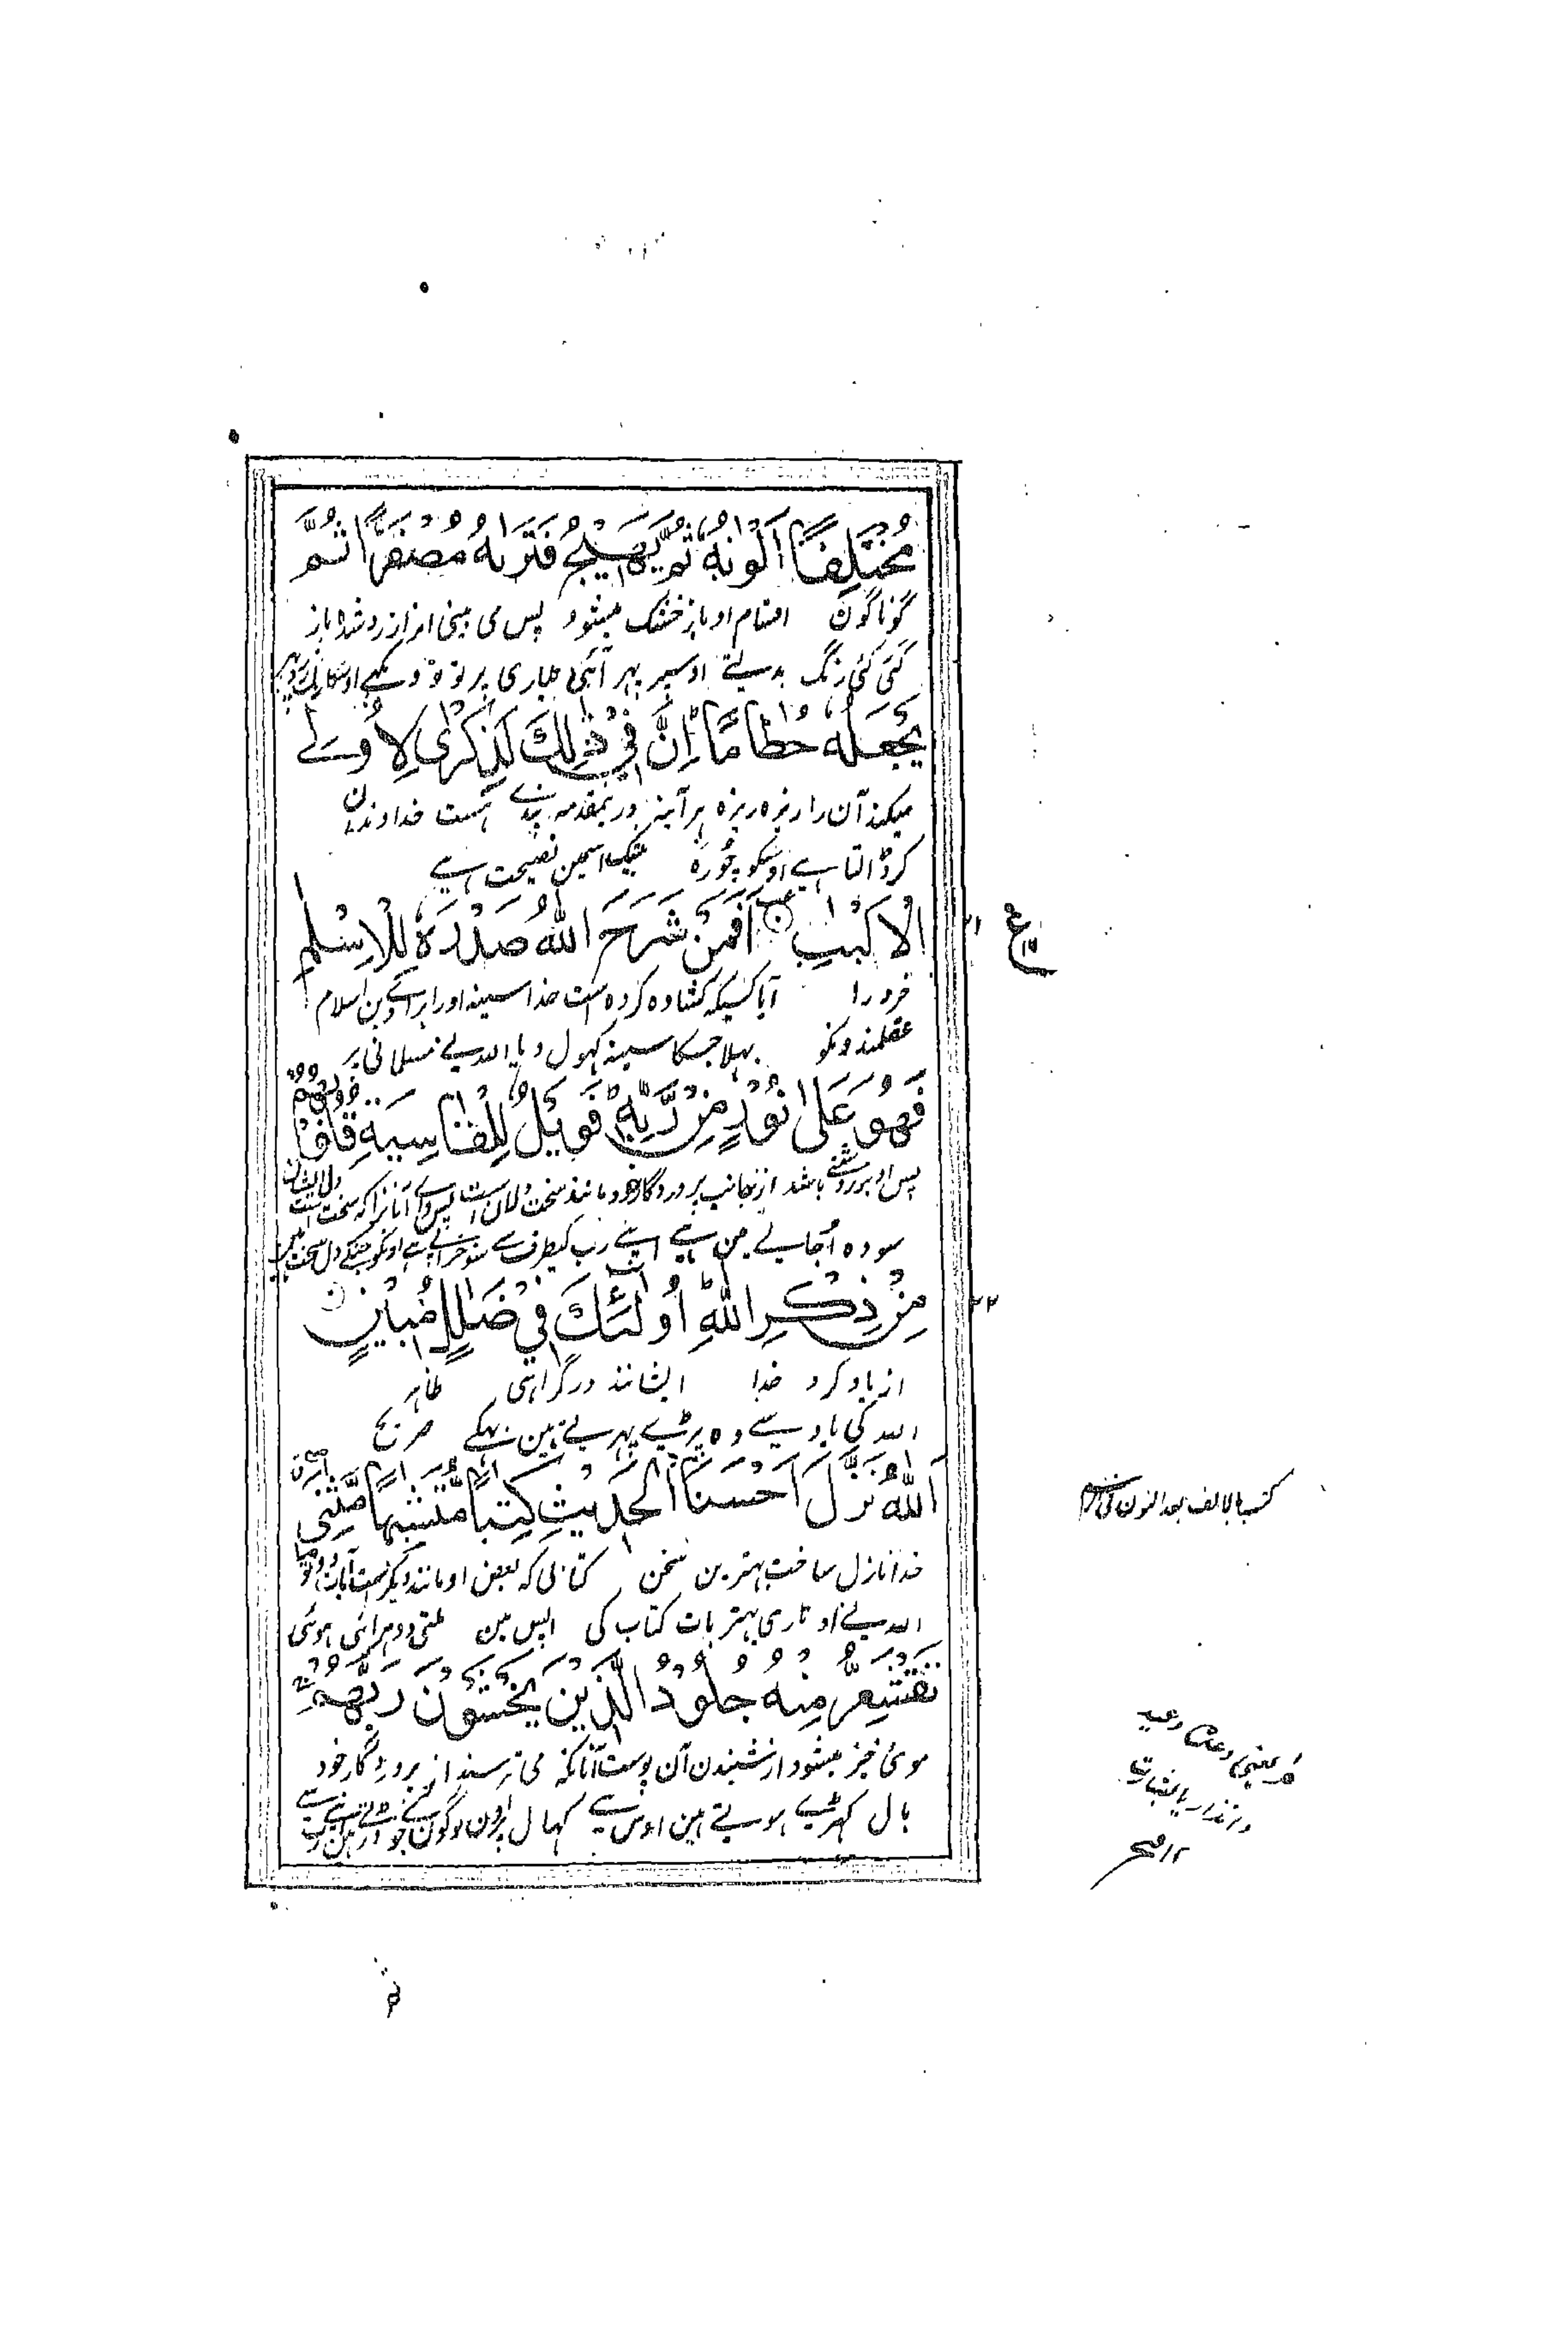 مُخْتَلِفًا اَلْوَانُهٗ ثُمَّ يَهِيْجُ فَتَرٰىهُ مُصْفَرًّا ثُمَّ
گوناگون اقسام او باز خشک میشود پس می بینی انرا زرد شده باز
کئی کئی رنگ بدلتے اوسپر پہر آئی طیاری پر تو تو دیکھے اوسکا رنگ زرد
يَجْعَلُهٗ حُطَامًا ؕ اِنَّ فِيْ ذٰلِكَ لَذِكْرٰى لِاُولِے
میکند آن را ریزه ریزه هر آینه درینمقدمه پندے هست خداوندان
کر ڈالتا ہے اوسکو چورہ بیشک اسمین نصیحت ہے
الْاَلْبَابِ ۞ اَفَمَنْ شَرَحَ اللّٰهُ صَدْرَهٗ لِلْاِسْلَمِ
۲۱
ع
خرد را آیا کسیکه کشاده کرده است خدا سینه او را براے دین اسلام
عقلمندونکو بہلا جسکا سینہ کہول دیا اللہ نے مسلمانی پر
فَهُوَ عَلٰى نُوْرٍ مِّنْ رَّبِّهٖ ؕ فَوَيْلٌ لِّلْقٰسِيَةِ قُلُوْبُهُمْ
پس او بر روشنے باشد از جانب پروردگار خود مانند سخت دلان است پس واے آنانرا که سخت است دل ایشان
سو وہ اُجالے مین ہے اپنے رب کیطرف سے سو خرابی ہے اونکو جنکے دل سخت ہین
مِّنْ ذِكْرِ اللّٰهِ ؕ اُولٰٓئِكَ فِيْ ضَلٰلٍ مُّبِيْنٍ ۞
۲۲
از یاد کرد خدا ایشانند در گمراهی ظاهر
اللہ کی یاد سے وہ پڑے پہرتے ہین بہکے صریح
اَللّٰهُ نَزَّلَ اَحْسَنَ الْحَدِيْثِ كِتٰبًا مُّتَشَابِهًا مَّثَانِىَ
خدا نازل ساخت بہترین سخن کتابی که بعض او مانند دیگر است آیات دوتو
اللہ نے اوتاری بہتر بات کتاب کی آپس مین ملتی دوہرائی ہوئی
تَقْشَعِرُّ مِنْهُ جُلُوْدُ الَّذِيْنَ يَخْشَوْنَ رَبَّهُمْ ۚ
موئ خیز میشود از شنیدن آن پوست آنانکه می ترسند از پروردگار خود
بال کہڑے ہوتے ہین اوس سے کہال پر اون لوگون کے جو ڈرتے ہین اپنے رب سے
یعنی وعدہ وعید
و انذار یا بشارت
۱۲ فتح